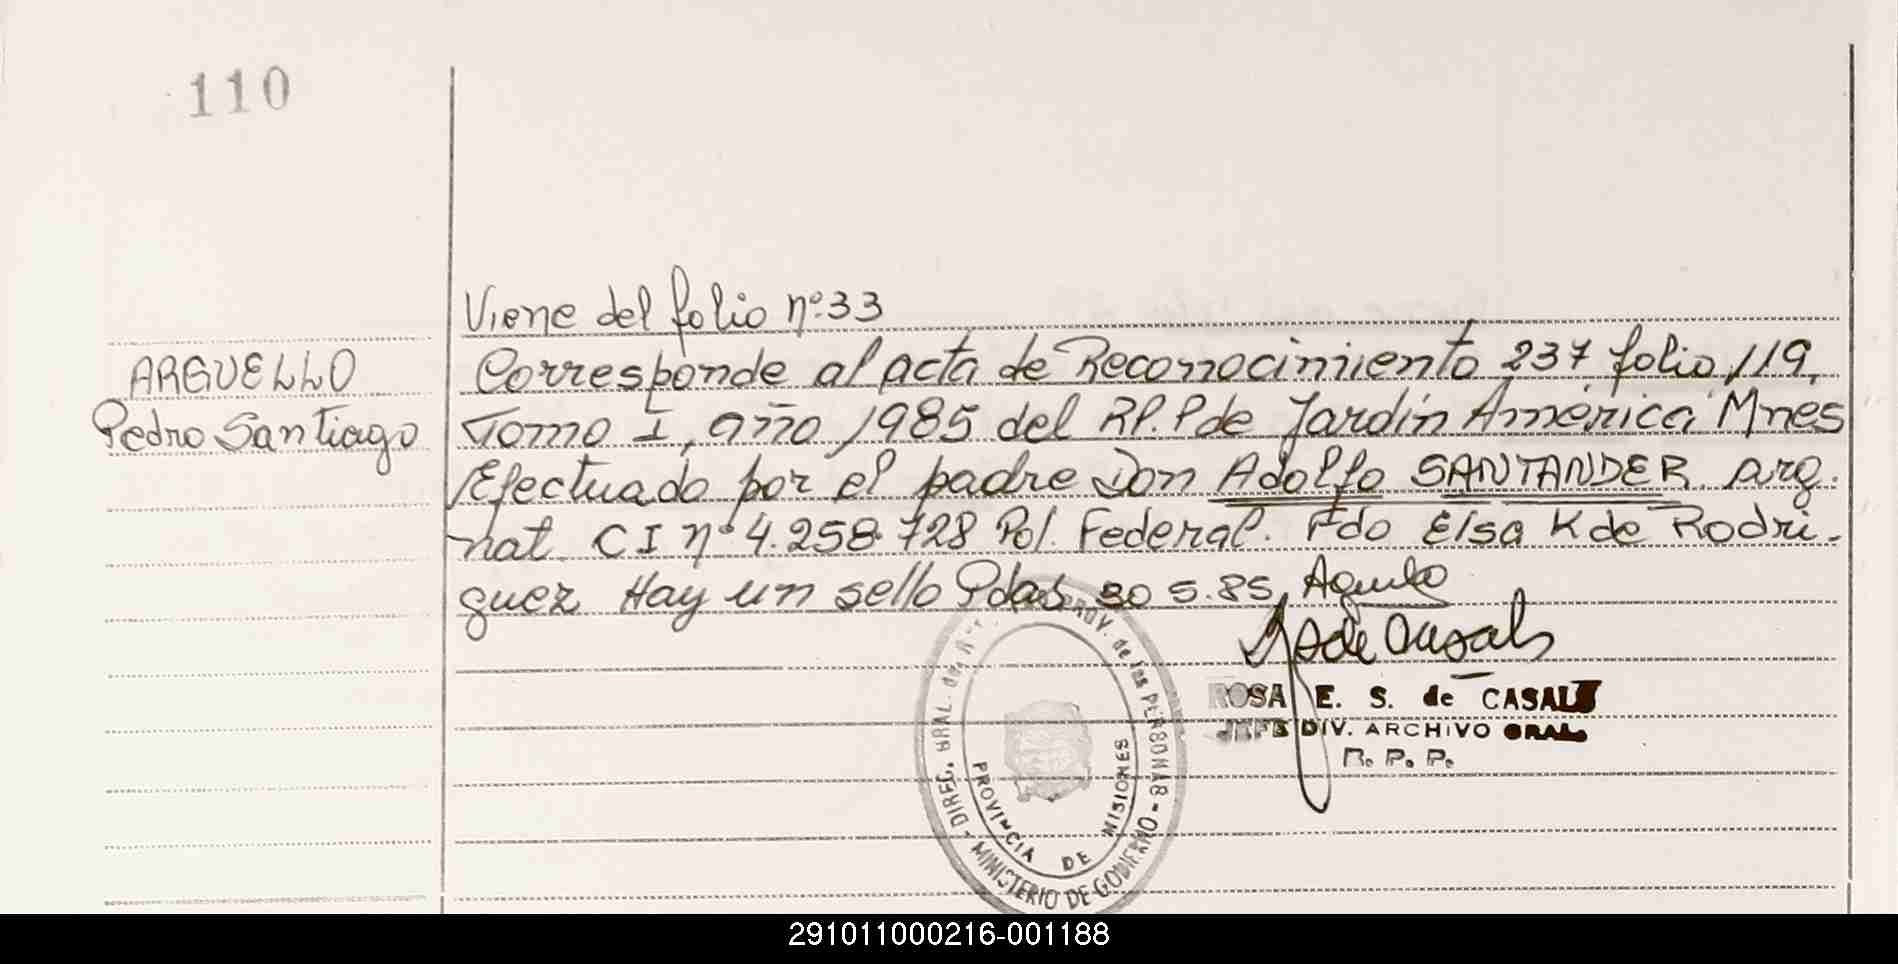 110
Viene del folio nº 33
ARGUELLO
Pedro Santiago
Corresponde al acta de Reconocimiento 237 folio 119,
Tomo I, año 1985 del RP.P de Jardín América Mnes
Efectuado por el padre Don Adolfo SANTANDER arg.
nat. CI nº 4.258.728 Pol. Federal. Fdo Elsa K de Rodri-
guez Hay un sello Pdas 30 5.85
ROSA E. S. de CASALS
JEFE DIV. ARCHIVO GRAL.
R. P. P.
PROV. de las PERSONAS - MINISTERIO DE GOBIERNO - DIREC. GRAL. de
PROVINCIA DE MISIONES
291011000216-001188